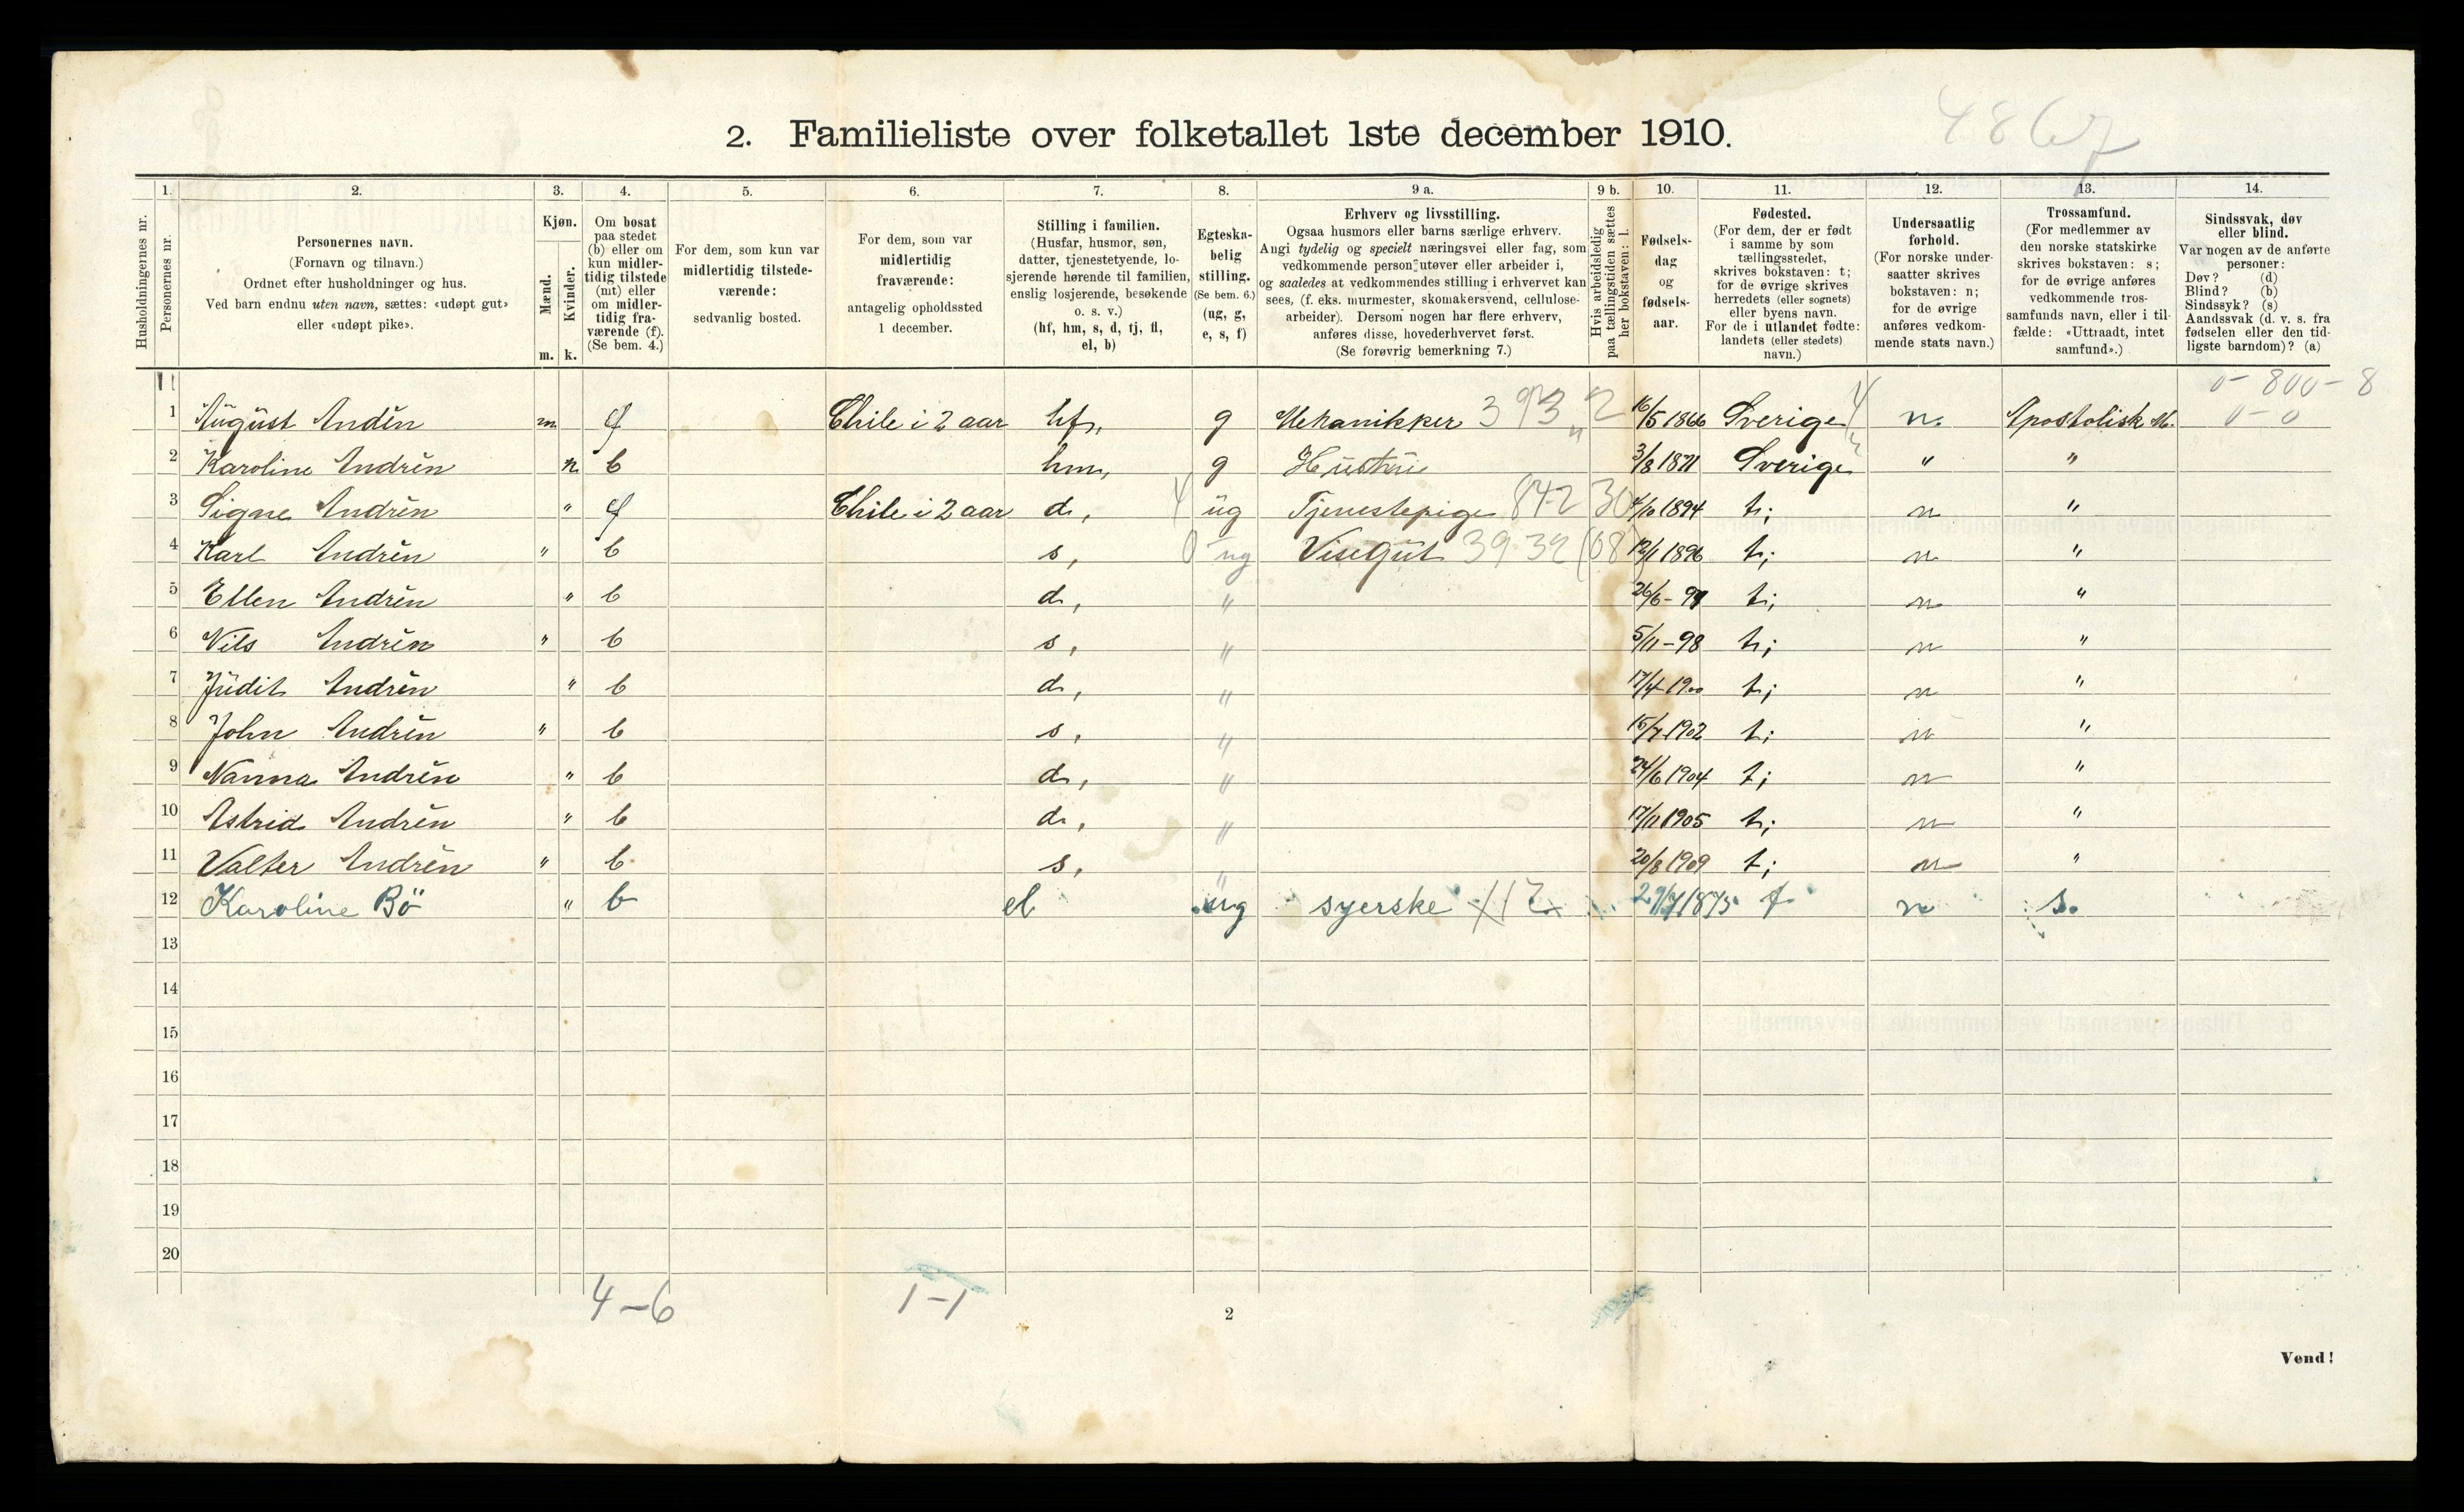 4867
2. Familieliste over folketallet 1ste december 1910.
1. 2. 3. 4. 5. 6. 7. 8. 9 a. 9 b. 10. 11. 12. 13. 14.
Husholdningernes nr.
Personernes nr.
Personernes navn.
(Fornavn og tilnavn.)
Ordnet efter husholdninger og hus.
Ved barn endnu uten navn, sættes: «udøpt gut»
eller «udøpt pike».
Kjøn.
Mænd.
Kvinder.
m. k.
Om bosat
paa stedet
(b) eller om
kun midler-
tidig tilstede
(mt) eller
om midler-
tidig fra-
værende (f).
(Se bem. 4.)
For dem, som kun var
midlertidig tilstede-
værende:
sedvanlig bosted.
For dem, som var
midlertidig
fraværende:
antagelig opholdssted
1 december.
Stilling i familien.
(Husfar, husmor, søn,
datter, tjenestetyende, lo-
sjerende hørende til familien,
enslig losjerende, besøkende
o. s. v.)
(hf, hm, s, d, tj, fl,
el, b)
Egteska-
belig
stilling.
(Se bem. 6.)
(ug, g,
e, s, f)
Erhverv og livsstilling.
Ogsaa husmors eller barns særlige erhverv.
Angi tydelig og specielt næringsvei eller fag, som
vedkommende person utøver eller arbeider i,
og saaledes at vedkommendes stilling i erhvervet kan
sees, (f. eks. murmester, skomakersvend, cellulose-
arbeider). Dersom nogen har flere erhverv,
anføres disse, hovederhvervet først.
(Se forøvrig bemerkning 7.)
Hvis arbeidsledig
paa tællingstiden sættes
her bokstaven: l.
Fødsels-
dag
og
fødsels-
aar.
Fødested.
(For dem, der er født
i samme by som
tællingsstedet,
skrives bokstaven: t;
for de øvrige skrives
herredets (eller sognets)
eller byens navn.
For de i utlandet fødte:
landets (eller stedets)
navn.)
Undersaatlig
forhold.
(For norske under-
saatter skrives
bokstaven: n;
for de øvrige
anføres vedkom-
mende stats navn.)
Trossamfund.
(For medlemmer av
den norske statskirke
skrives bokstaven: s;
for de øvrige anføres
vedkommende tros-
samfunds navn, eller i til-
fælde: «Uttraadt, intet
samfund».)
Sindssvak, døv
eller blind.
Var nogen av de anførte
personer:
Døv? (d)
Blind? (b)
Sindssyk? (s)
Aandssvak (d. v. s. fra
fødselen eller den tid-
ligste barndom)? (a)
0-800-8
1 August Andén m f Chile i 2 aar hf, g Mekanikker 393 2 16/5 1866 Sverige n. Apostolisk M. 0-0
2 Karoline Andrén k b hm, g Hustru 3/8 1871 Sverige " "
3 Signe Andrén " f Chile i 2 aar d, ug Tjenestepige 842 30 4/10 1894 t; n "
4 Karl Andrén " b s, 0 ug Visegut 39 32 (08) 12/1 1896 t; n "
5 Ellen Andrén " b d, " 26/6-97 t; n "
6 Nils Andrén " b s, " 5/11-98 t; n "
7 Judit Andrén " b d, " 17/4-1900 t; n "
8 John Andrén " b s, " 15/7-1902 t; n "
9 Nanna Andrén " b d, " 24/6 1904 t; n "
10 Astrid Andrén " b d, " 17/11 1905 t; n "
11 Valter Andrén " b s, " 20/8 1909 t; n "
12 Karoline Bö " b el ug syerske 29/7 1875 t n s.
13
14
15
16
17
18
19
20
4-6 1-1
2
Vend!